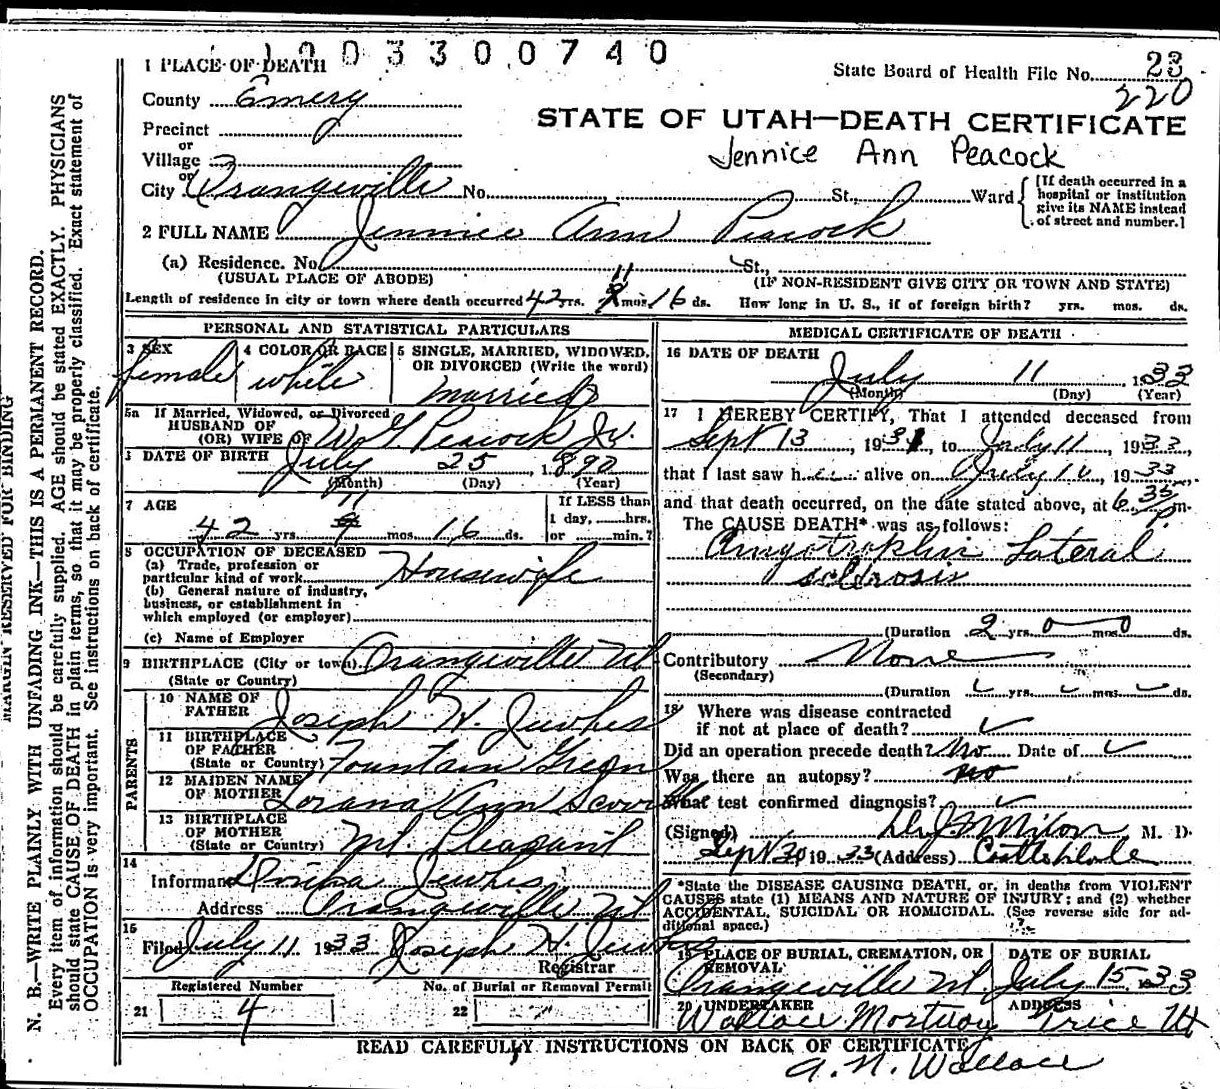 1003300740
1 PLACE OF DEATH
State Board of Health File No. 23
220
County Emery
STATE OF UTAH—DEATH CERTIFICATE
Precinct
or
Village
Jennice Ann Peacock
or
City Orangeville No. St., Ward
[If death occurred in a hospital or institution give its NAME instead of street and number.]
2 FULL NAME Jennice Ann Peacock
(a) Residence. No. St.,
(USUAL PLACE OF ABODE) (IF NON-RESIDENT GIVE CITY OR TOWN AND STATE)
Length of residence in city or town where death occurred 42 yrs. 11 mos. 16 ds. How long in U. S., if of foreign birth? yrs. mos. ds.
PERSONAL AND STATISTICAL PARTICULARS
3 SEX
female
4 COLOR OR RACE
white
5 SINGLE, MARRIED, WIDOWED, OR DIVORCED (Write the word)
married
5a If Married, Widowed, or Divorced
HUSBAND OF
(OR) WIFE OF Peacock Jr.
DATE OF BIRTH July 25, 1890
(Month) (Day) (Year)
7 AGE
42 yrs. 11 mos. 16 ds.
If LESS than
1 day, hrs.
or min.?
8 OCCUPATION OF DECEASED
(a) Trade, profession or
particular kind of work Housewife
(b) General nature of industry,
business, or establishment in
which employed (or employer)
(c) Name of Employer
9 BIRTHPLACE (City or town) Orangeville Ut
(State or Country)
PARENTS
10 NAME OF
FATHER Joseph H. Jewkes
11 BIRTHPLACE
OF FATHER
(State or Country) Fountain Green
12 MAIDEN NAME
OF MOTHER Lorana Ann Scovill
13 BIRTHPLACE
OF MOTHER
(State or Country) Mt. Pleasant
14
Informant Jewkes
Address Orangeville Ut
15
Filed July 11 1933 Joseph H. Jewkes
Registrar
Registered Number No. of Burial or Removal Permit
21 4 22
MEDICAL CERTIFICATE OF DEATH
16 DATE OF DEATH
July 11, 1933
(Month) (Day) (Year)
17 I HEREBY CERTIFY, That I attended deceased from
Sept 13, 1931, to July 11, 1933,
that I last saw her alive on July 10, 1933,
and that death occurred, on the date stated above, at 6 35 P m.
The CAUSE DEATH* was as follows:
Amyotrophic Lateral
sclerosis
(Duration 2 yrs. 0 mos. 0 ds.
Contributory None
(Secondary)
(Duration yrs. mos. ds.
18 Where was disease contracted
if not at place of death?
Did an operation precede death? No Date of
Was there an autopsy? no
What test confirmed diagnosis?
(Signed) M. D.
Sept 20 1933 (Address) Castle Dale
*State the DISEASE CAUSING DEATH, or, in deaths from VIOLENT
CAUSES state (1) MEANS AND NATURE OF INJURY; and (2) whether
ACCIDENTAL, SUICIDAL OR HOMICIDAL. (See reverse side for additional space.)
19 PLACE OF BURIAL, CREMATION, OR
REMOVAL
Orangeville Ut.
DATE OF BURIAL
July 15 1933
20 UNDERTAKER
Wallace Mortuary
ADDRESS
Price Ut
READ CAREFULLY INSTRUCTIONS ON BACK OF CERTIFICATE
A. N. Wallace
MARGIN RESERVED FOR BINDING
N. B.—WRITE PLAINLY WITH UNFADING INK—THIS IS A PERMANENT RECORD.
Every item of information should be carefully supplied. AGE should be stated EXACTLY. PHYSICIANS
should state CAUSE OF DEATH in plain terms, so that it may be properly classified. Exact statement of
OCCUPATION is very important. See instructions on back of certificate.